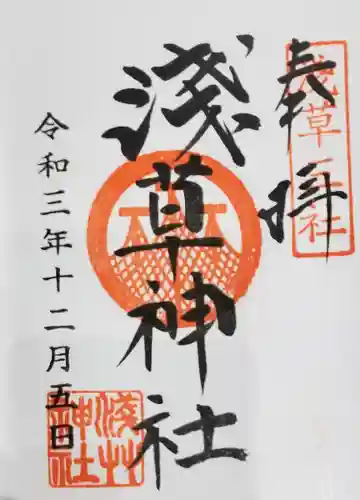 奉拝
浅草三社
淺草神社
令和三年十二月五日
淺草神社